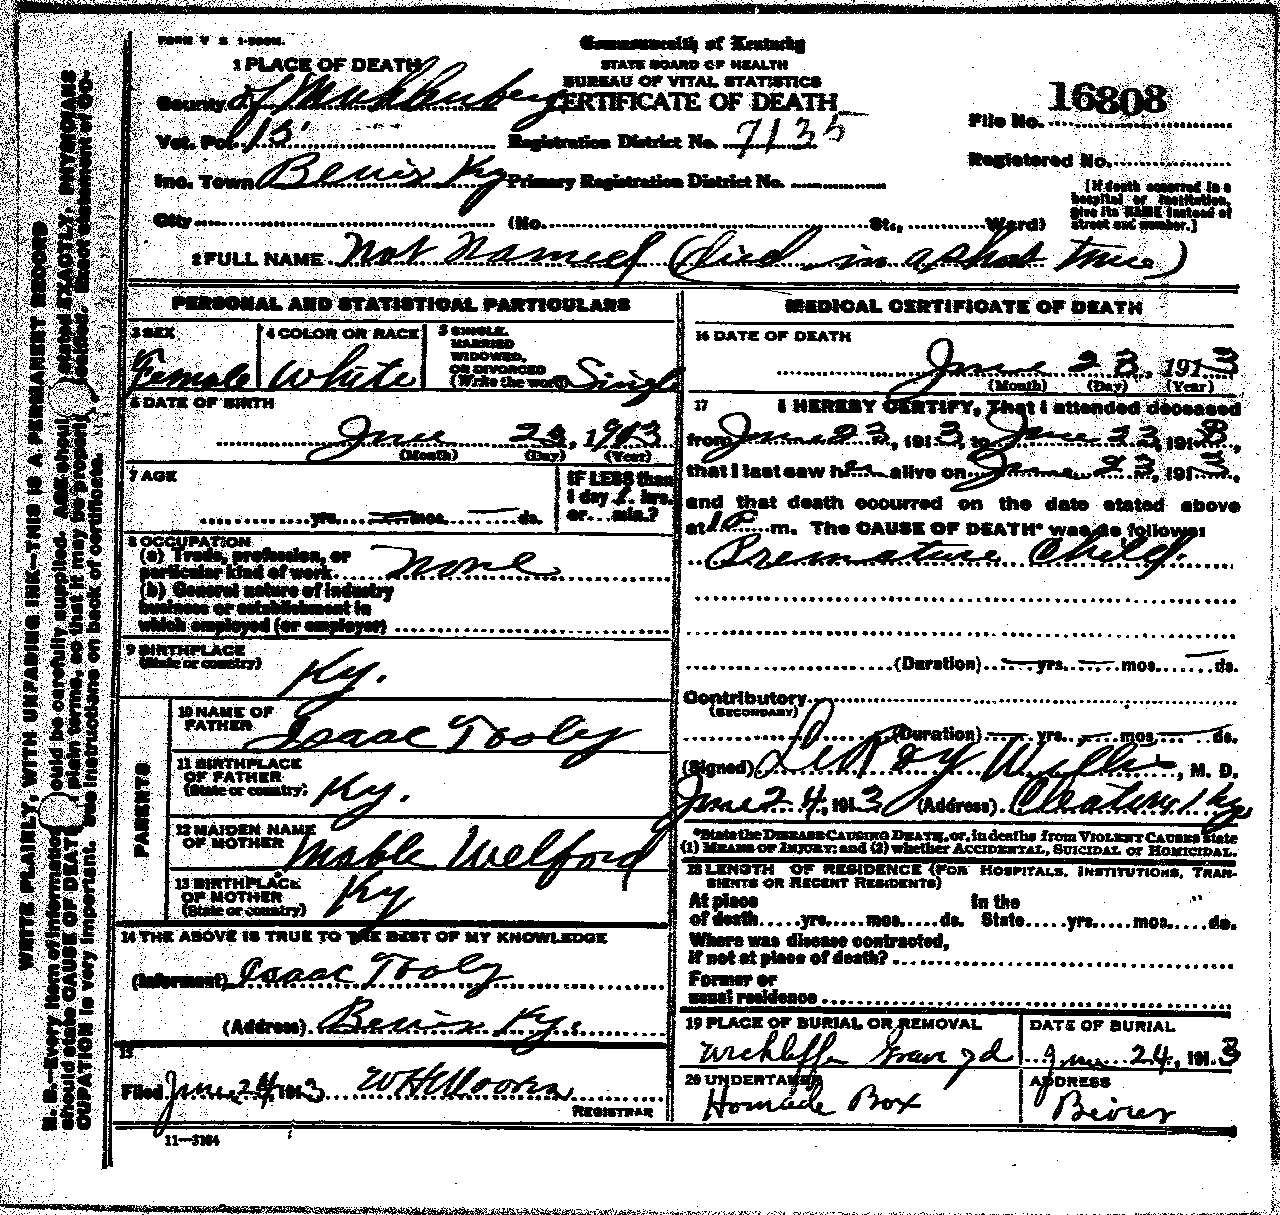 FORM V S 1-500M.
Commonwealth of Kentucky
STATE BOARD OF HEALTH
BUREAU OF VITAL STATISTICS
CERTIFICATE OF DEATH
1 PLACE OF DEATH
County of Muhlenberg
Vot. Pct. 13
Registration District No. 7135
File No. 16808
Registered No.
Inc. Town Bevier Ky
Primary Registration District No.
City (No. St., Ward)
[If death occurred in a
hospital or institution,
give its NAME instead of
street and number.]
2 FULL NAME Not Named (died in a short time)
PERSONAL AND STATISTICAL PARTICULARS
3 SEX
Female
4 COLOR OR RACE
White
5 SINGLE,
MARRIED
WIDOWED,
OR DIVORCED
(Write the word) Single
6 DATE OF BIRTH
June 23, 1913
(Month) (Day) (Year)
7 AGE
yrs. mos. ds.
IF LESS than
1 day 1 hrs.
or min.?
8 OCCUPATION
(a) Trade, profession, or
particular kind of work None
(b) General nature of industry
business or establishment in
which employed (or employer)
9 BIRTHPLACE
(State or country)
Ky.
PARENTS
10 NAME OF
FATHER
Isaac Tooley
11 BIRTHPLACE
OF FATHER
(State or country)
Ky.
12 MAIDEN NAME
OF MOTHER
Mable Welford
13 BIRTHPLACE
OF MOTHER
(State or country)
Ky
14 THE ABOVE IS TRUE TO THE BEST OF MY KNOWLEDGE
(Informant) Isaac Tooley
(Address) Bevier Ky.
15
Filed June 24 1913 W H Moores
REGISTRAR
11—3184
MEDICAL CERTIFICATE OF DEATH
16 DATE OF DEATH
June 23, 1913
(Month) (Day) (Year)
17 I HEREBY CERTIFY, That I attended deceased
from June 23, 1913, to June 23, 1913,
that I last saw her alive on June 23, 1913,
and that death occurred on the date stated above
at m. The CAUSE OF DEATH* was as follows:
Premature Child.
(Duration) yrs. mos. ds.
Contributory
(SECONDARY)
(Duration) yrs. mos. ds.
(Signed) LeRoy Willis, M. D.
June 24, 1913 (Address) Ky
*State the DISEASE CAUSING DEATH, or, in deaths from VIOLENT CAUSES state
(1) MEANS OF INJURY; and (2) whether ACCIDENTAL, SUICIDAL or HOMICIDAL.
18 LENGTH OF RESIDENCE (FOR HOSPITALS, INSTITUTIONS, TRAN-
SIENTS OR RECENT RESIDENTS)
At place In the
of death yrs. mos. ds. State yrs. mos. ds.
Where was disease contracted,
if not at place of death?
Former or
usual residence
19 PLACE OF BURIAL OR REMOVAL
Wickliffe Grave yd
DATE OF BURIAL
June 24, 1913
20 UNDERTAKER
Homade Box
ADDRESS
Bevier
WRITE PLAINLY, WITH UNFADING INK—THIS IS A PERMANENT RECORD
N. B.—Every item of information should be carefully supplied. AGE should be stated EXACTLY. PHYSICIANS
should state CAUSE OF DEATH in plain terms, so that it may be properly classified. Exact statement of OC-
CUPATION is very important. See instructions on back of certificate.